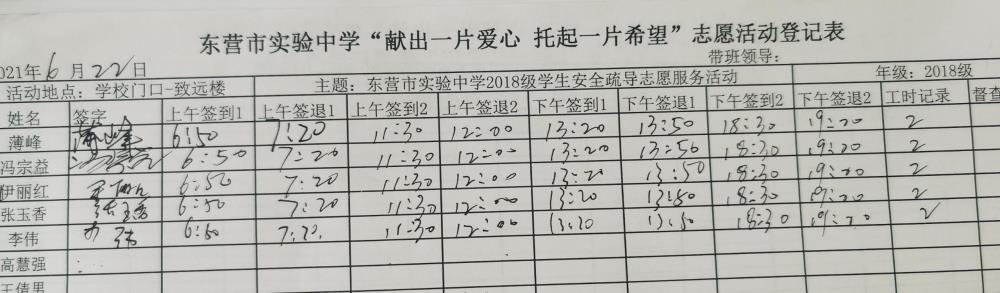 东营市实验中学“献出一片爱心 托起一片希望”志愿活动登记表
021年6月22日 带班领导：
活动地点：学校门口-致远楼 主题：东营市实验中学2018级学生安全疏导志愿服务活动 年级：2018级
姓名 签字 上午签到1 上午签退1 上午签到2 上午签退2 下午签到1 下午签退1 下午签到2 下午签退2 工时记录 督查
薄峰 薄峰 6:50 7:20 11:30 12:00 13:20 13:50 18:30 19:20 2
冯宗益 6:50 7:20 11:30 12:00 13:20 13:50 18:30 19:20 2
伊丽红 6:50 7:20 11:30 12:00 13:20 13:50 18:30 19:20 2
张玉香 张玉香 6:50 7:20 11:30 12:00 13:20 13:50 18:30 19:20 2
李伟 6:50 7:20 11:30 12:00 13:20 13:50 18:30 19:20 2
高慧强
王倩男